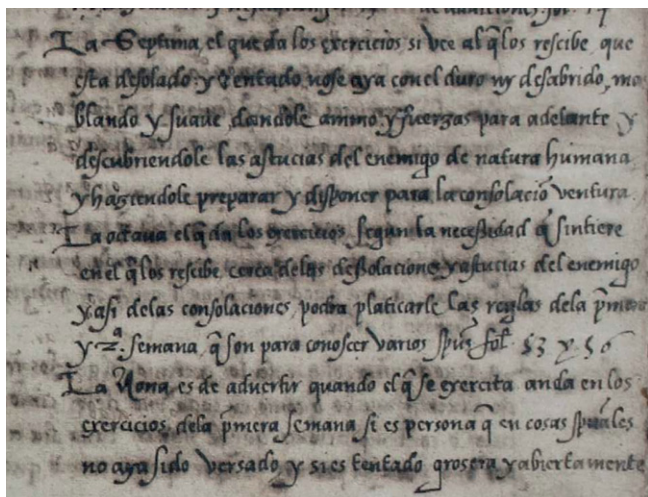 de addiciones. fol.
La Septima el que da los exercicios si vee al q̃ los rescibe, que
esta desolado y tentado no se aya con el duro ny desabrido, mas
blando y suaue, dandole animo y fuerzas para adelante y
descubriendole las astucias del enemigo de natura humana
y haziendole preparar y disponer para la consolaciõ ventura.
La octaua el q̃ da los exercicios segun la necessidad q̃ sintiere
en el q̃ los rescibe cerca de las dessolaciones y astucias del enemigo
y asi de las consolaciones podra platicarle las reglas de la p̃mera
y 2ª. semana q̃ son para conoscer varios spũs fol. 53 y 56
La Nona es de aduertir quando el q̃ se exercita anda en los
exercicios de la p̃mera semana si es persona q̃ en cosas spũales
no aya sido versado, y si es tentado grosera y abiertamente